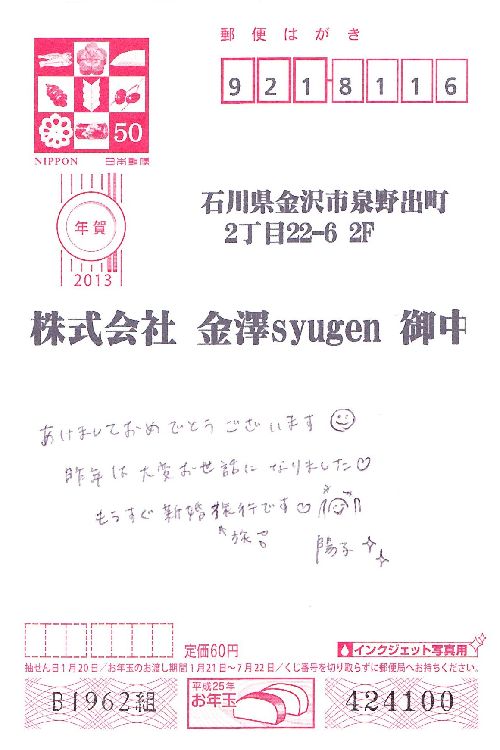 郵便はがき
9218116
50
NIPPON 日本郵便
年賀
2013
石川県金沢市泉野出町
2丁目22-6 2F
株式会社 金澤syugen 御中
あけましておめでとうございます
昨年は大変お世話になりました♡
もうすぐ新婚旅行です♡
陽子
定価60円
インクジェット写真用
抽せん日1月20日/お年玉のお渡し期間1月21日~7月22日/くじ番号を切り取らずに郵便局へお持ちください。
B1962組
平成25年
お年玉
424100